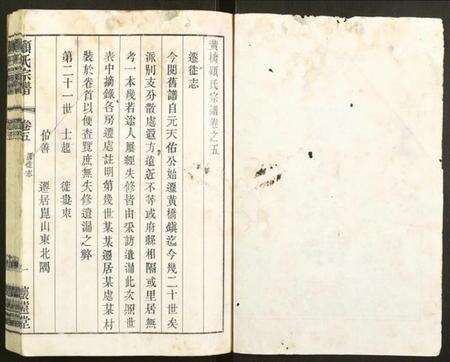 黃橋顧氏宗譜卷之五
遷徙志
今閱舊譜自元天佑公始遷黃橋鎮迄今幾二十世矣
派別支分散處遠方遠近不等或府縣相隔或里居無
考一本幾若途人屢經失修皆由采訪遺漏此次照世
表中摘錄各房遷處註明第幾世某某遷居某處某村
裝於卷首以便查覽庶無失修遺漏之弊
第二十一世 士起 徙
伯善 遷居崑山東北隅
顧氏宗譜
卷五
遷徙志
一